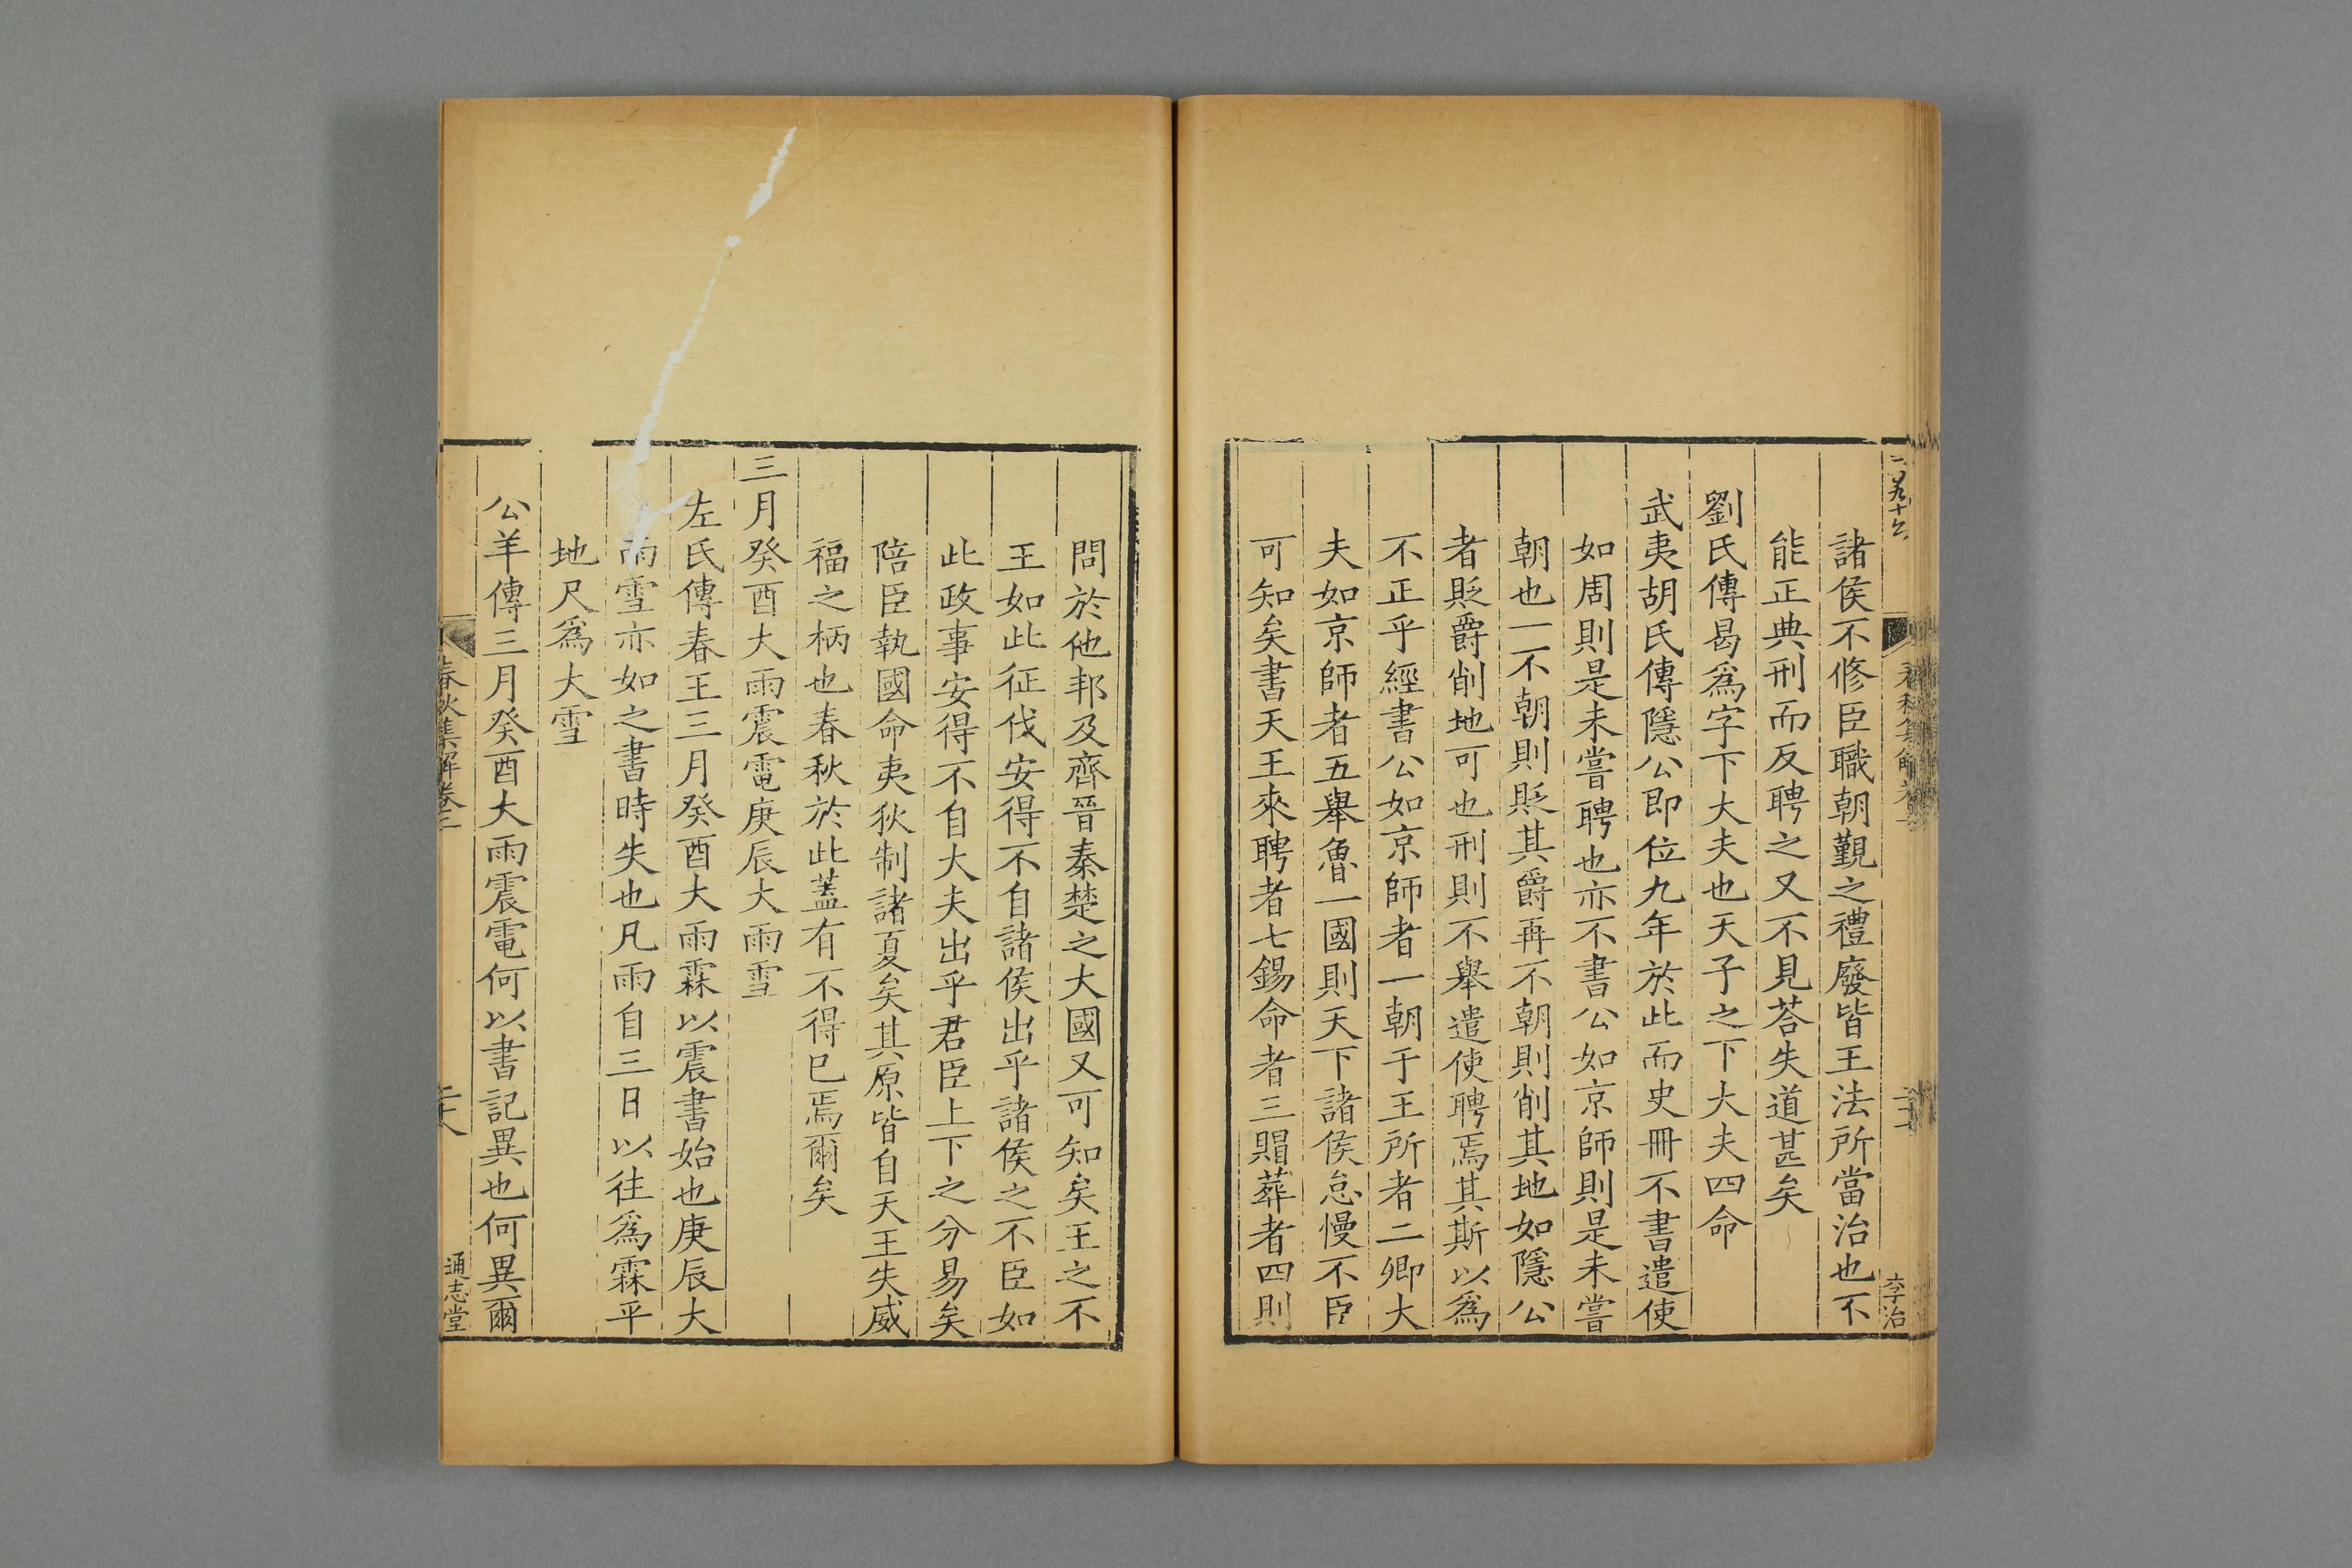 諸侯不修臣職朝覲之禮廢皆王法所當治也不
能正典刑而反聘之又不見荅失道甚矣
劉氏傳曷爲字下大夫也天子之下大夫四命
武夷胡氏傳隱公即位九年於此而史冊不書遣使
如周則是未嘗聘也亦不書公如京師則是未嘗
朝也一不朝則貶其爵再不朝則削其地如隱公
者貶爵削地可也刑則不舉遣使聘焉其斯以爲
不正乎經書公如京師者一朝于王所者二卿大
夫如京師者五舉魯一國則天下諸侯怠慢不臣
可知矣書天王來聘者七錫命者三賵葬者四則
問於他邦及齊晉秦楚之大國又可知矣王之不
王如此征伐安得不自諸侯出乎諸侯之不臣如
此政事安得不自大夫出乎君臣上下之分易矣
陪臣執國命夷狄制諸夏矣其原皆自天王失威
福之柄也春秋於此蓋有不得已焉爾矣
三月癸酉大雨震電庚辰大雨雪
左氏傳春王三月癸酉大雨霖以震書始也庚辰大
雨雪亦如之書時失也凡雨自三日以往爲霖平
地尺爲大雪
公羊傳三月癸酉大雨震電何以書記異也何異爾
春秋集解卷三
通志堂
李治